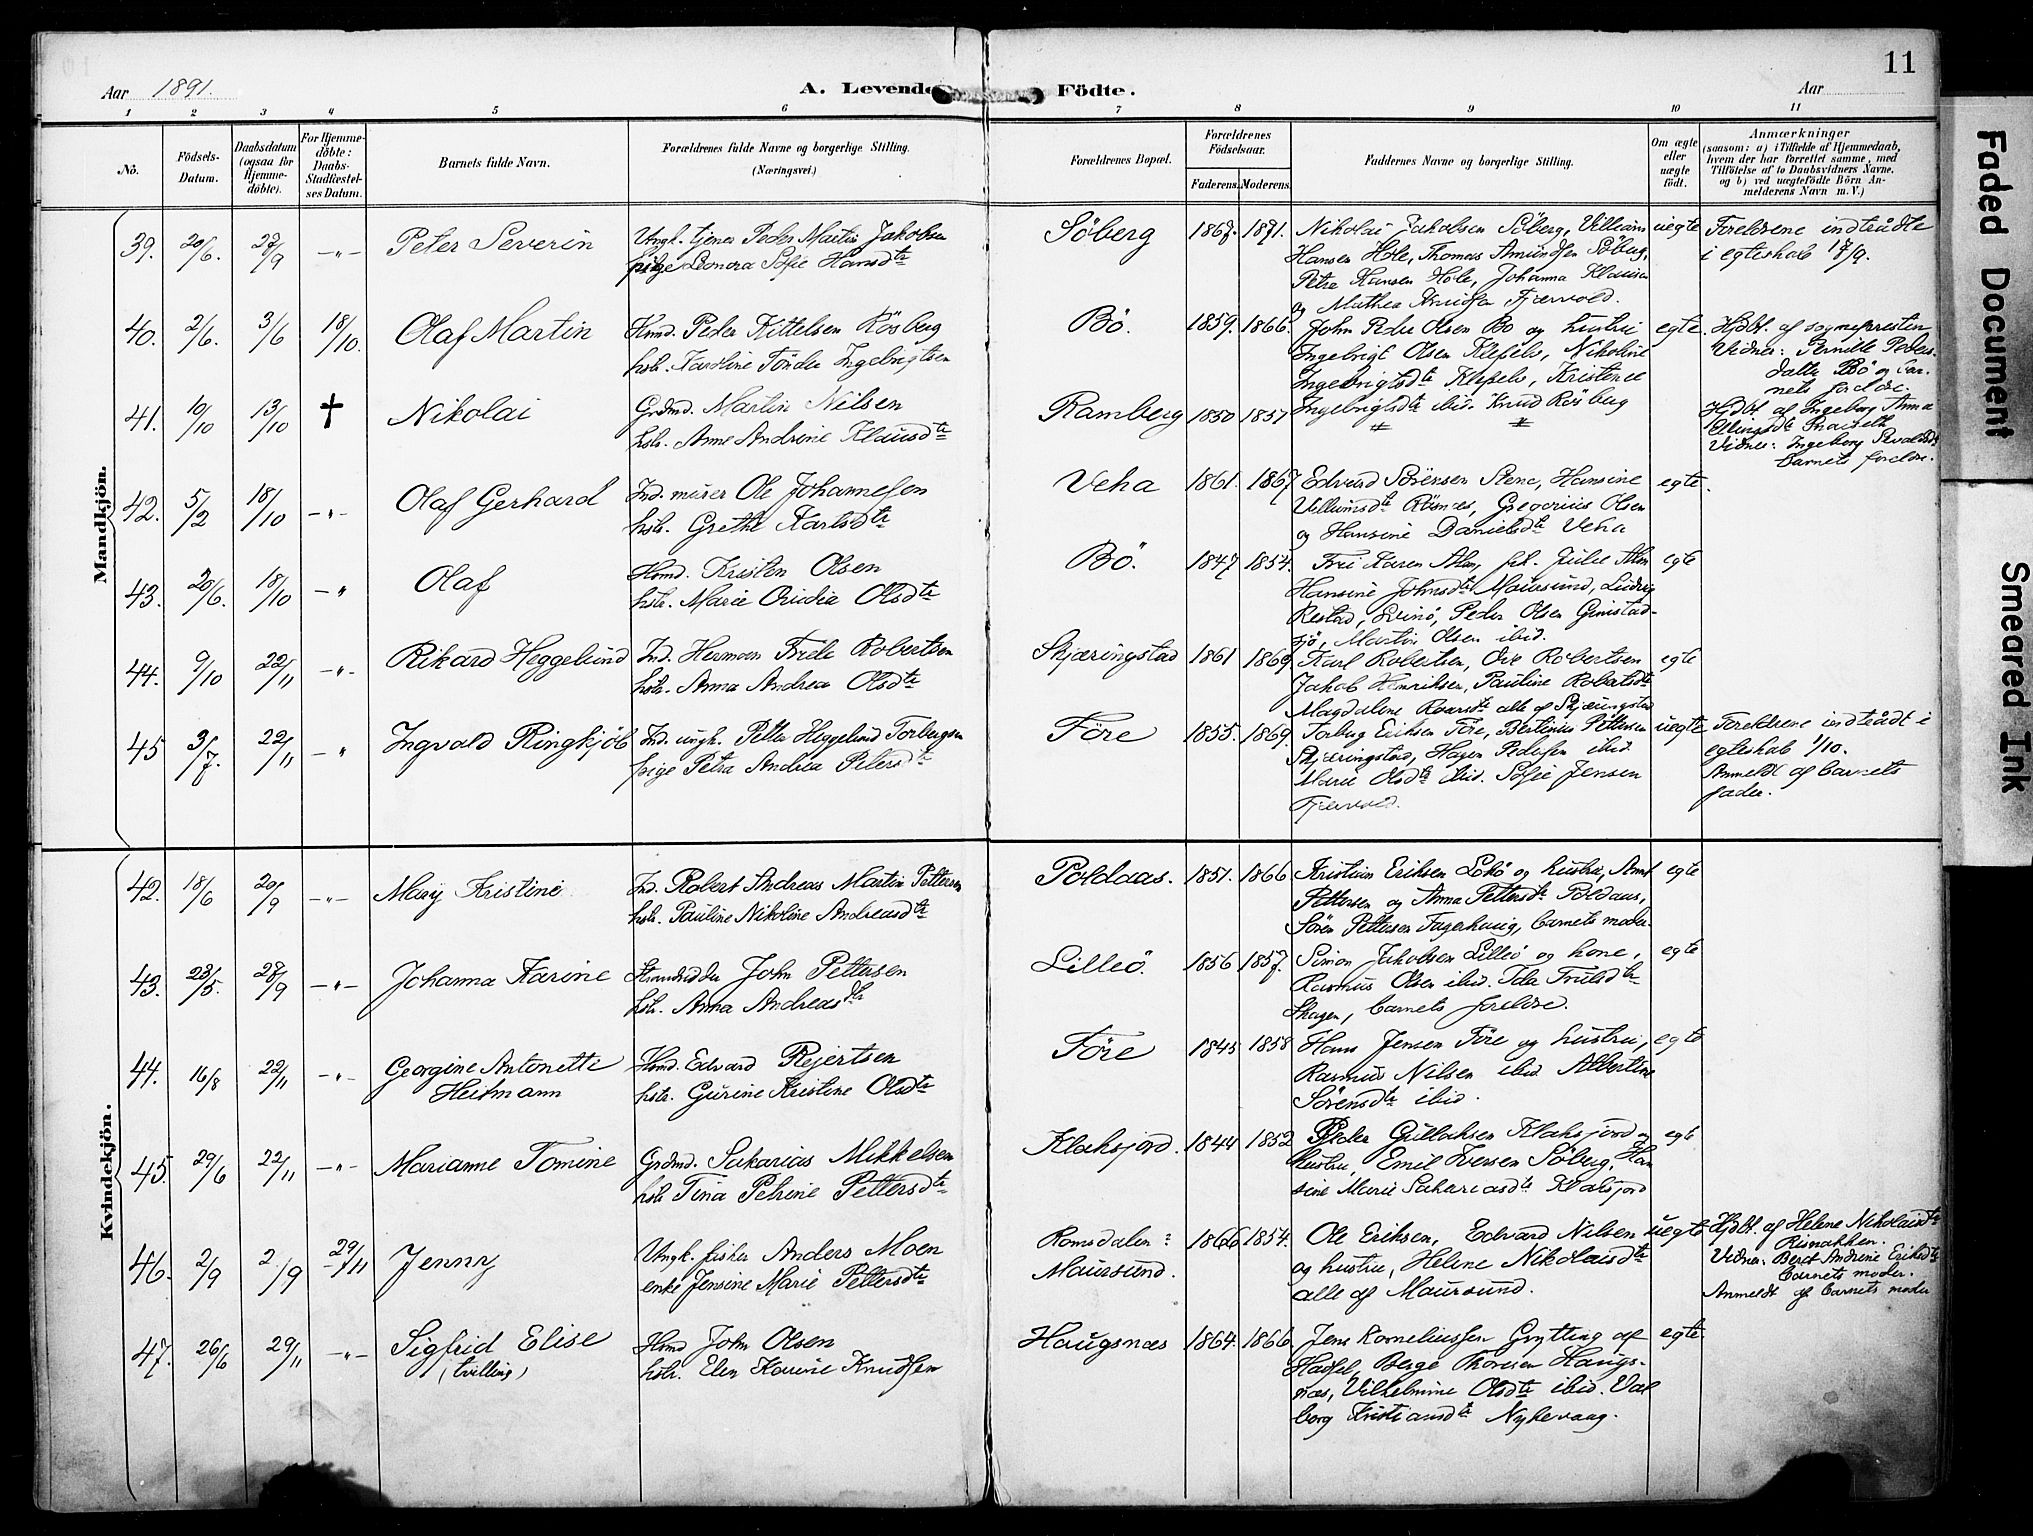 11
Aar 1891.
A. Levende Födte.
Aar
1 2 3 4 5 6 7 8 9 10 11
No.
Födsels-Datum.
Daabsdatum (ogsaa for Hjemme-döbte).
For Hjemme-döbte: Daabs-Stadfæstel-ses Datum.
Barnets fulde Navn.
Forældrenes fulde Navne og borgerlige Stilling.
(Næringsvei.)
Forældrenes Bopæl.
Forældrenes Födselsaar.
Faderens. Moderens.
Faddernes Navne og borgerlige Stilling.
Om ægte eller uægte födt.
Anmærkninger
(saasom: a) i Tilfælde af Hjemmedaab,
hvem der har forrettet samme, med
Tilföielse af to Daabsvidners Navne,
og b) ved uægtefödte Börn An-
melderens Navn m. V.)
Mandkjön.
39. 20/6. 27/9 -"- Peter Severin
Ungk. tjener Peder Martin Jakobsen
pige Leonora Sofie Hansdtr
Söberg 1867. 1871.
Nikolai Jakobsen Söberg, Villiam
Hansen Hole, Thomas Amundsen Söberg,
Petra Hansen Hole, Johanna Klausen
og Mathea Knudsen Fjærvold.
uegte
Foreldrene indtraadte
i egteskab 17/9.
40. 2/6. 3/6 18/10. Olaf Martin
Hmd. Peder Kittelsen Rösberg
hstr. Karoline Tönder Ingebrigtsen
Bö. 1859. 1866.
John Peder Olsen Bö og hustru
Ingebrigt Olsen Klepels, Nikoline
Ingebrigtsdtr Klepels, Kristence
Ingebrigtsdtr ibid. Knud Rösberg
egte.
Hjdbt. af sogneprresten
Vidner: Pernille Peders-
datter Bö og bar-
nets foreldre.
41. 10/10 13/10 † Nikolai
Grdmd. Martin Nilsen
hstr. Anne Andrine Klausdtr
Ramberg 1850 1857
Hjdbt. af Ingeborg Anna
Vidner: Ingeborg
barnets foreldre.
42. 5/2 18/10 -"- Olaf Gerhard
Ind. murer Ole Johannesen
hstr. Grethe Karlsdtr
Veha 1861. 1867
Edvard Sörensen Stene, Hansine
Villumsdtr Rösnes, Gregorius Olsen
og Hansine Danielsdtr Veha
egte.
43. 20/6. 18/10 -" Olaf
Hmd. Kristen Olsen
hstr. Marie Ovidia Olsdtr
Bö. 1847 1854.
Fru Karen Alm, frk. Julie Alm
Hansine Johnsdtr Maursund, Ludvig
Restad, Svinö, Peder Olsen Grimstad-
sjö, Martin Olsen ibid.
egte
44. 9/10 22/11 -"- Rikard Heggelund
Ind. Herman Friele Robertsen
hstr. Anna Andrea Olsdtr
Skjæringstad 1861 1869
Karl Robertsen, Ove Robertsen
Jakob Henriksen, Pauline Robertsdtr
Magdalene alle af Skjæringstad
egte
45 3/7. 22/11 -" Ingvald Ringkjöb
Ind. ungk. Petter Heggelund Torbergsen
pige Petra Andrea Petersdtr
Före 1855. 1869.
Torberg Eriksen Före, Bertinius Pettersen
Skjæringstad, Hagen Pedersen ibid.
Marie Olsdtr ibid. Sofie Jensen
Fjærvold.
uegte
Foreldrene indtraadt i
egteskab 1/10.
Anmeldt af barnets
fader.
Kvindekjön.
42. 18/6 20/9 -"- Mary Kristine
Ind. Robert Andreas Martin Pettersen
hstr. Pauline Nikoline Andreasdtr
Poldaas. 1851. 1866
Kristian Eriksen Lökö og hustru, Arnt
Pettersen og Anna Pettersdtr Poldaas,
Sören Pettersen Fagerhaug, barnets moder.
egte
43. 23/5. 27/9 -"- Johanna Karine
Strandsidder John Pettersen
hstr. Anna Andreasdtr
Lilleö. 1856 1857.
Simon Jakobsen Lilleö og kone,
Rasmus Olsen ibid. Ida Trulsdtr
Skagen, barnets foreldre.
egte
44. 16/8 22/11 -"- Georgine Antonette
Heitmann
Hmd. Edvard Rejertsen
hstr. Gurine Kristine Olsdtr
Före 1845 1858
Hans Jensen Före og hustru,
Rasmus Nilsen ibid Albertine
Sörensdtr ibid.
egte
45. 29/6 22/11 -"- Marianne Tomine
Grdmd. Sakarias Mikkelsen
hstr Tina Petrine Pettersdtr
Klaksjord. 1844 1852
Peder Gullaksen Klaksjord og
hustru, Emil Iversen Söberg, Han
sine Marie Sakariasdtr Kvalsjord
egte
46. 2/9 2/9 29/11 Jenny
Ungk. fisker Anders Moen
enke Jensine Marie Pettersdtr
Romsdalen:
Maursund. 1866 1854.
Ole Eriksen, Edvard Nilsen
og hustru, Helene Nikolaisdtr
alle af Maursund.
uegte
Hjdbt. af Helene Nikolaisdtr
Risnakken.
Vidner: Beret Andrine Eriksdtr
barnets moder.
Anmeldt af barnets moder
47. 26/6 29/11 -"- Sigfrid Elise
(tvilling)
Hmd John Olsen
hstr. Elen Karine Knudsen
Haugsnæs 1864. 1866
Jens Korneliussen Grytting af
Hadsel, Berge Thoresen Haugs-
næs, Vilhelmine Olsdtr ibid. Val
borg Kristiansdtr Nykvaag.
egte
Faded Document
Smeared Ink